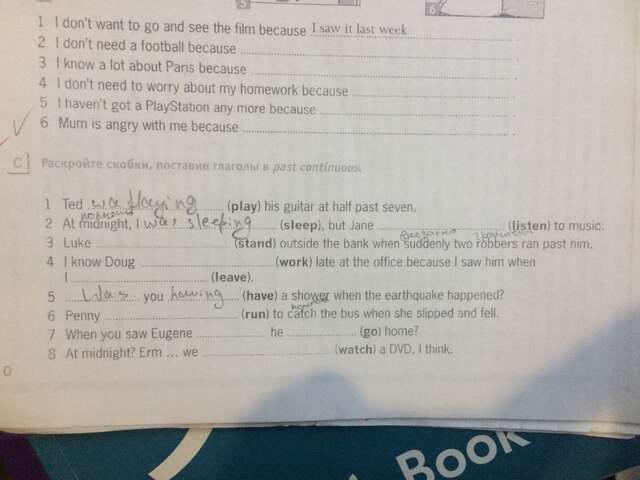 1 I don't want to go and see the film because I saw it last week
2 I don't need a football because
3 I know a lot about Paris because
4 I don't need to worry about my homework because
5 I haven't got a PlayStation any more because
6 Mum is angry with me because
C Раскройте скобки, поставив глаголы в past continuous.
1 Ted was playing (play) his guitar at half past seven.
2 At midnight, I was sleeping (sleep), but Jane (listen) to music.
3 Luke (stand) outside the bank when suddenly two robbers ran past him.
4 I know Doug (work) late at the office because I saw him when
I (leave).
5 Was you having (have) a shower when the earthquake happened?
6 Penny (run) to catch the bus when she slipped and fell.
7 When you saw Eugene he (go) home?
8 At midnight? Erm ... we (watch) a DVD, I think.
Book